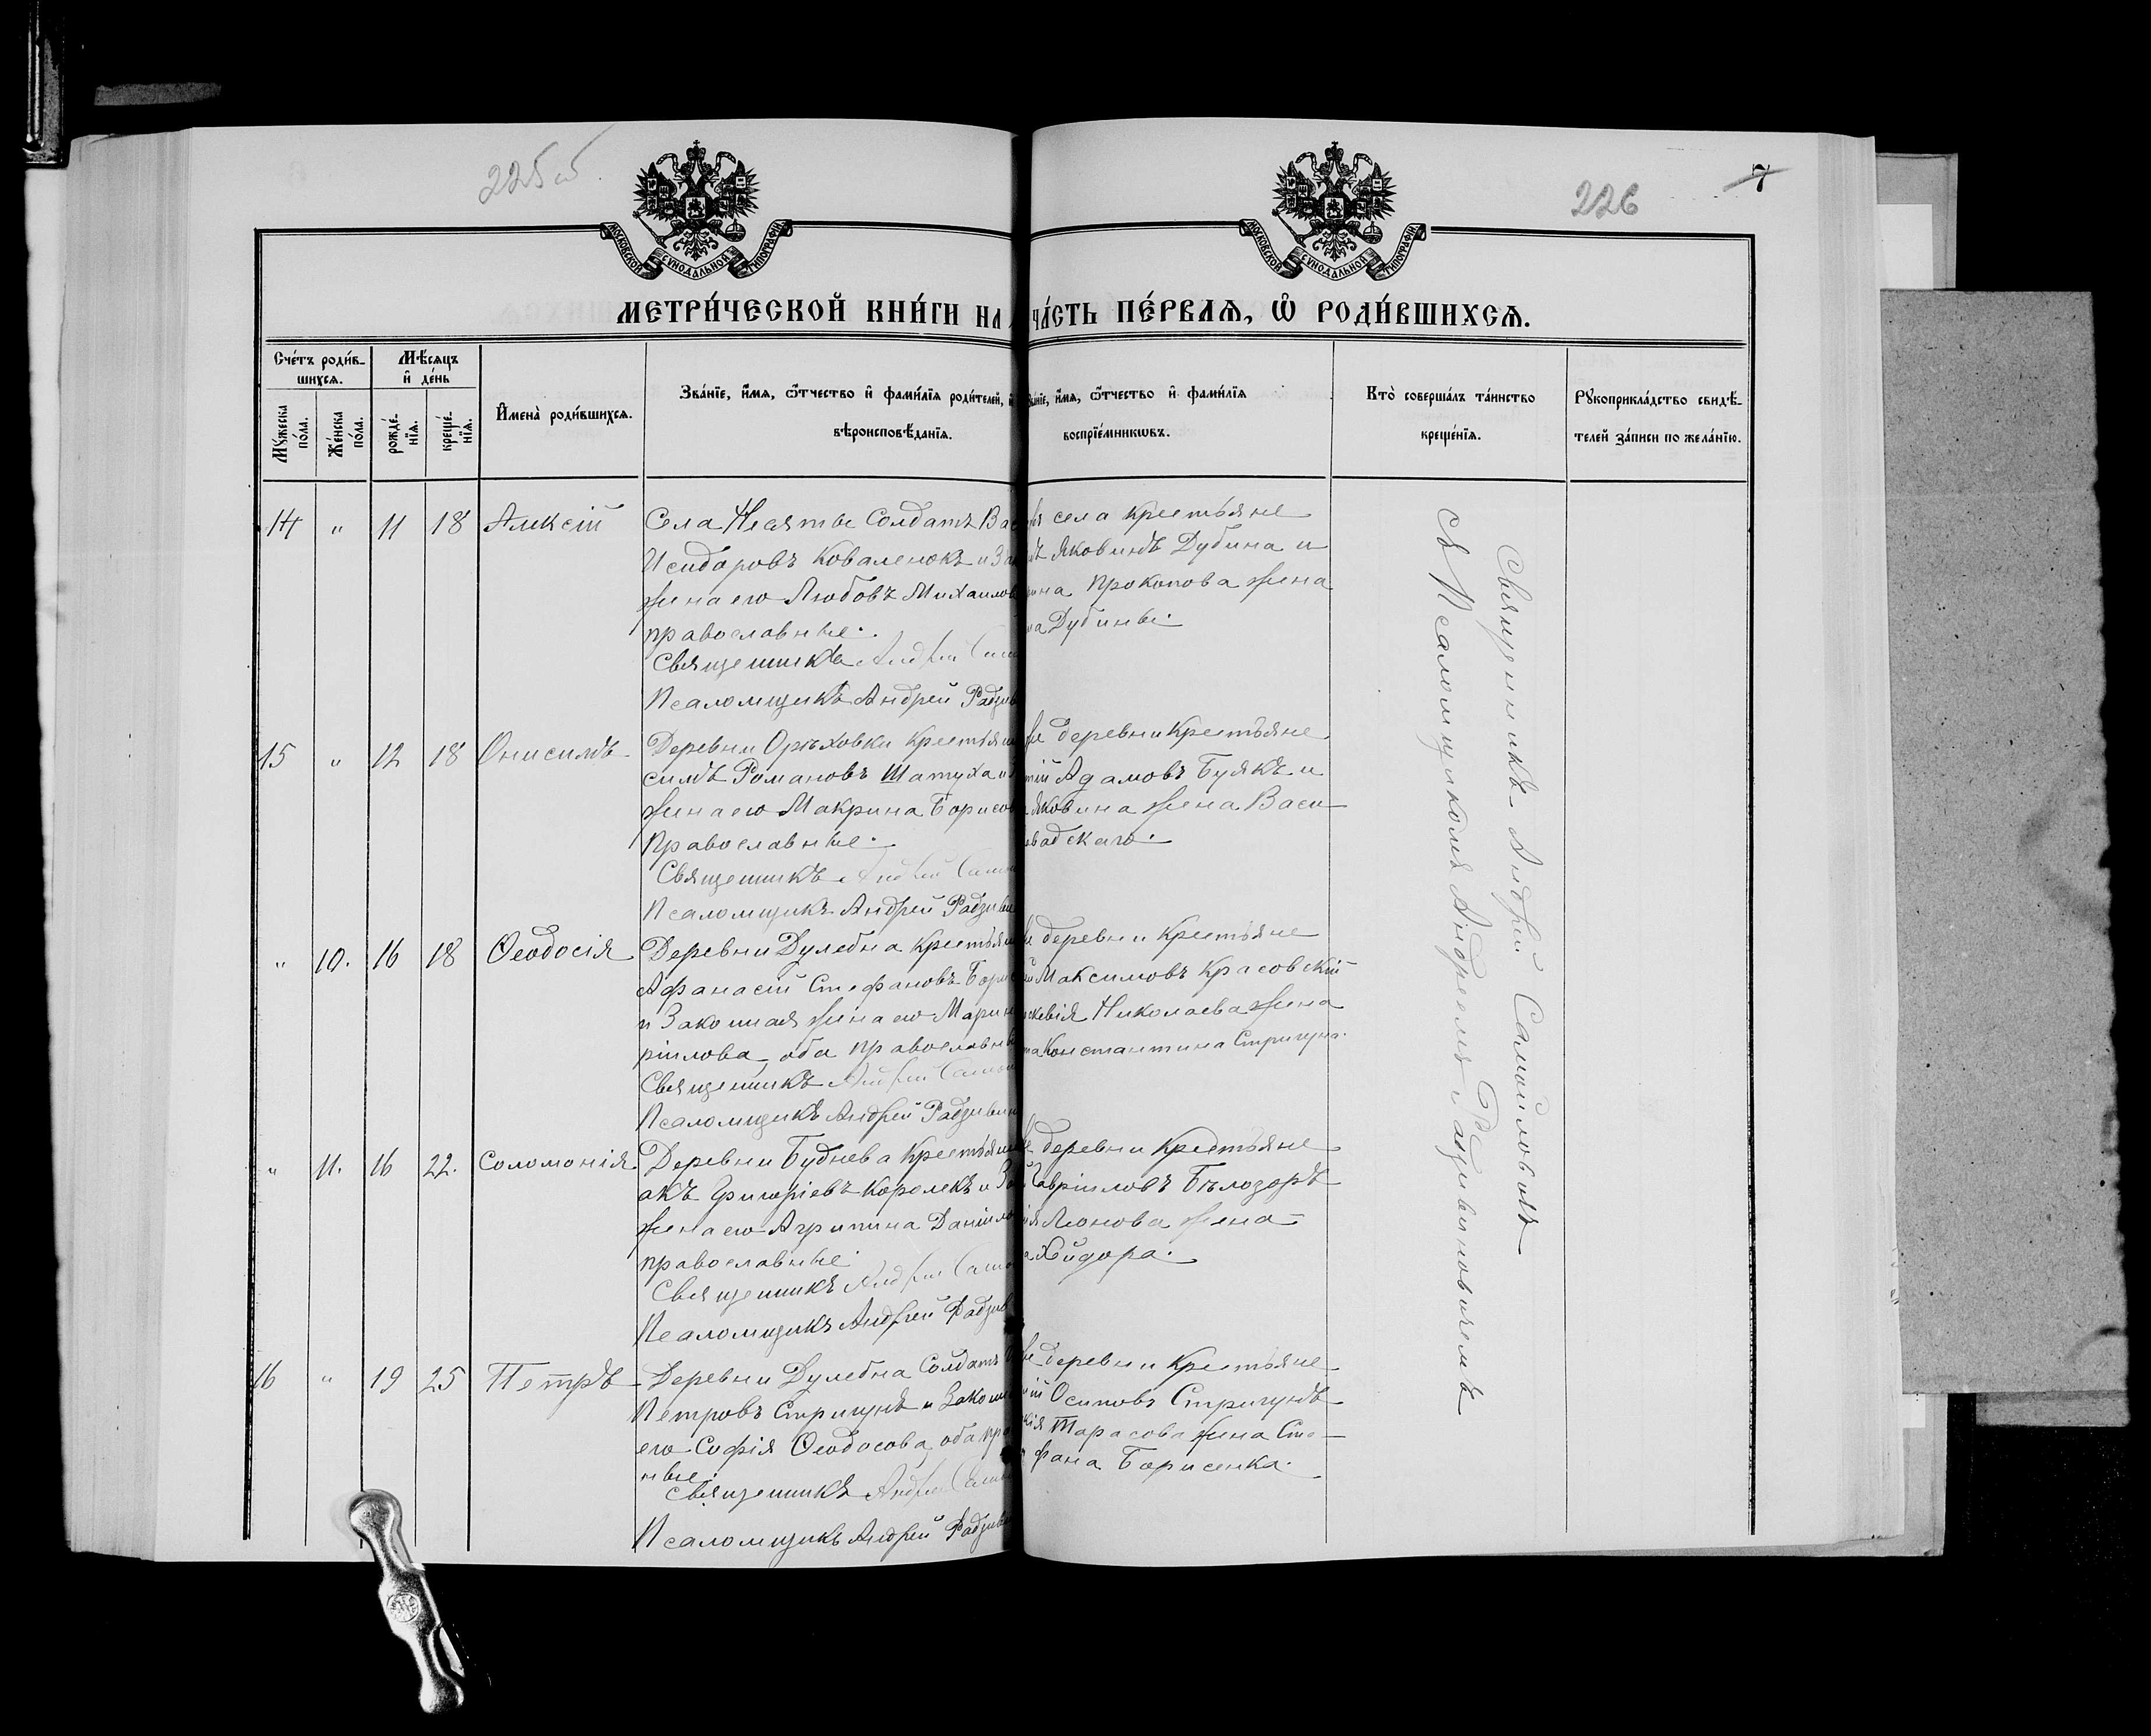 225 об.
226
7
МОСКОВСКОЙ СѴНОДАЛЬНОЙ ТИПОГРАФІИ
МОСКОВСКОЙ СѴНОДАЛЬНОЙ ТИПОГРАФІИ
МЕТРИ́ЧЕСКОЙ КНИ́ГИ НА
ЧА́СТЬ ПЕ́РВАЯ, Ѡ҆ РОДИ́ВШИХСЯ.
Сче́тъ роди́в-
шихся.
Мѣ́сяцъ
и҆ де́нь
Мꙋ́жеска по́ла.
Же́нска по́ла.
рожде́-
нїя.
креще́-
нїя.
И҆мена̀ роди́вшихся.
Зва́нїе, и҆́мя, ѻ҆́тчество и҆ фами́лїя роди́телей, и҆
вѣроисповѣ́данїя.
и҆́мя, ѻ҆́тчество и҆ фами́лїя
воспрїе́мникѡвъ.
Кто̀ соверша́лъ та́инство
креще́нїя.
Рꙋкоприкла́дство свидѣ́-
телей за́писи по жела́нїю.
14 " 11 18 Алексій
Села Несяты Солдатъ Вас
Исидоровъ Коваленокъ и За
жена его Любовь Михаилов
православные.
Священникъ Андрей Само
Псаломщикъ Андрей Радзив
села крестьяне
Яковинъ Дубина и
Прокопова жена
Дубины.
15 " 12 18 Онисимъ
Деревни Орѣховки крестьян
симъ Романовъ Шатуха и
жена его Макрина Борисов
Православные.
Священникъ Андрей Само
Псаломщикъ Андрей Радзиви
деревни Крестьяне
Адамовъ Буякъ и
Яковина жена Васи-
вадскаго.
" 10. 16 18 Ѳеодосія
Деревни Дулебна крестьян
Афанасій Стефановъ Борис
и Законная жена его Марин
ріилова, оба православны
Священникъ Андрей Само
Псаломщикъ Андрей Радзиви
деревни крестьяне
Максимовъ Красовскій
Николаева жена
Константина Стригуна.
" 11. 16 22. Соломонія
Деревни Буднева Крестьян
акъ Григоріевъ Королекъ и За
жена его Агрипина Даніило
православные.
Священникъ Андрей Само
Псаломщикъ Андрей Радзив
деревни Крестьяне
Гавріиловъ Бѣлозоръ
Леонова жена
Хвидора.
16 " 19 25 Петръ
Деревни Дулебна Солдатъ
Петровъ Стригунъ и Законн
его Софія Ѳеодосова, оба пра
ные.
Священникъ Андрей Само
Псаломщикъ Андрей Радзив
деревни Крестьяне
Осиповъ Стригунъ
Тарасова жена Сте-
фана Борисенка.
Священникъ Андрей Самойловичъ
съ Псаломщикомъ Андреемъ Радзивиновичемъ